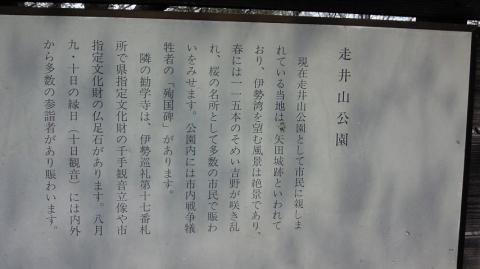 走井山公園
現在走井山公園として市民に親しま
れている当地は、矢田城跡といわれて
おり、伊勢湾を望む風景は絶景であり、
春には一一五本のそめい吉野が咲き乱
れ、桜の名所として多数の市民で賑わ
いをみせます。公園内には市内戦争犠
牲者の「殉国碑」があります。
隣の勧学寺は、伊勢巡礼第十七番札
所で県指定文化財の千手観音立像や市
指定文化財の仏足石があります。八月
九・十日の縁日（十日観音）には内外
から多数の参詣者があり賑わいます。